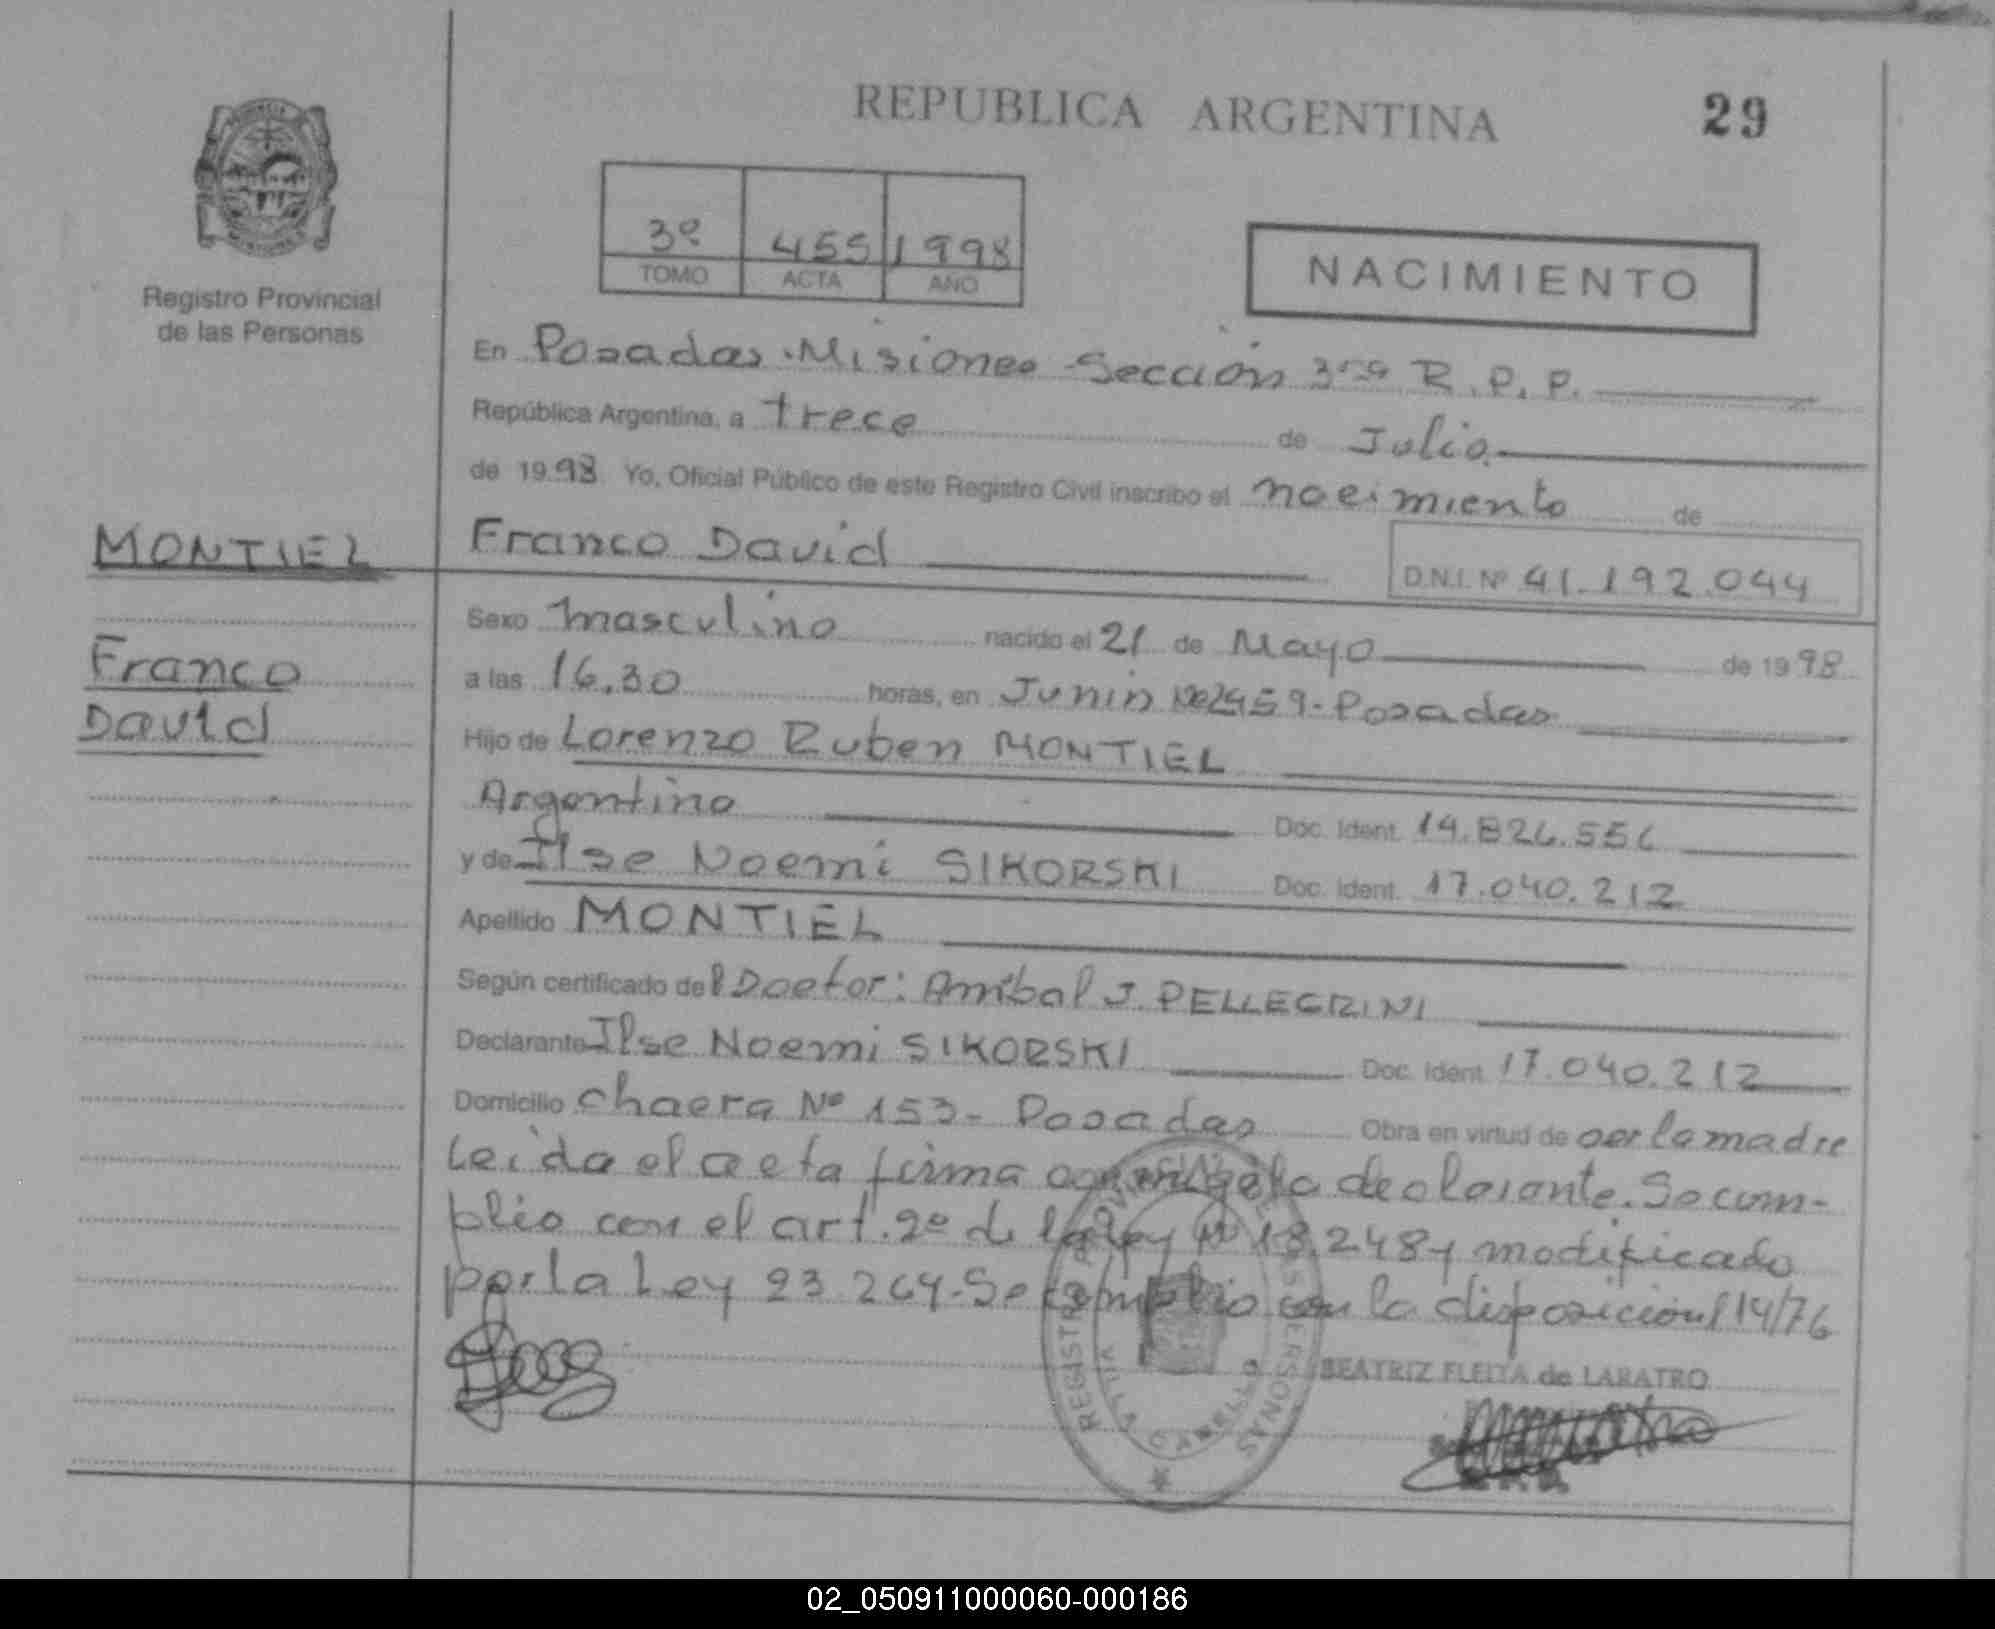 REPUBLICA ARGENTINA
29
3º 455 1998
TOMO ACTA AÑO
NACIMIENTO
Registro Provincial
de las Personas
En Posadas Misiones Sección 3ra R.P.P.
República Argentina, a trece de Julio
de 1998 Yo, Oficial Público de este Registro Civil inscribo el nacimiento de
MONTIEL
Franco David
D.N.I. Nº 41.192.044
Sexo masculino nacido el 21 de Mayo de 1998
Franco
a las 16.30 horas, en Junin Nº 2459-Posadas
David
Hijo de Lorenzo Ruben MONTIEL
Argentino Doc. Ident. 14.826.556
y de Ilse Noemi SIKORSKI Doc. Ident. 17.040.212
Apellido MONTIEL
Según certificado del Doctor: Anibal J. PELLEGRINI
Declarante Ilse Noemi SIKORSKI Doc. Ident. 17.040.212
Domicilio Chacra Nº 153- Posadas Obra en virtud de ser la madre
Leida el acta firma la declarante. Se cum-
plio con el art. 2º de la Ley Nº 18.248 y modificado
por la Ley 23.264-Se cumplio con la disposicion 114/76
REGISTRO PROVINCIAL DE LAS PERSONAS
VILLA CABELLO
BEATRIZ FLEITA de LABATRO
02_050911000060-000186